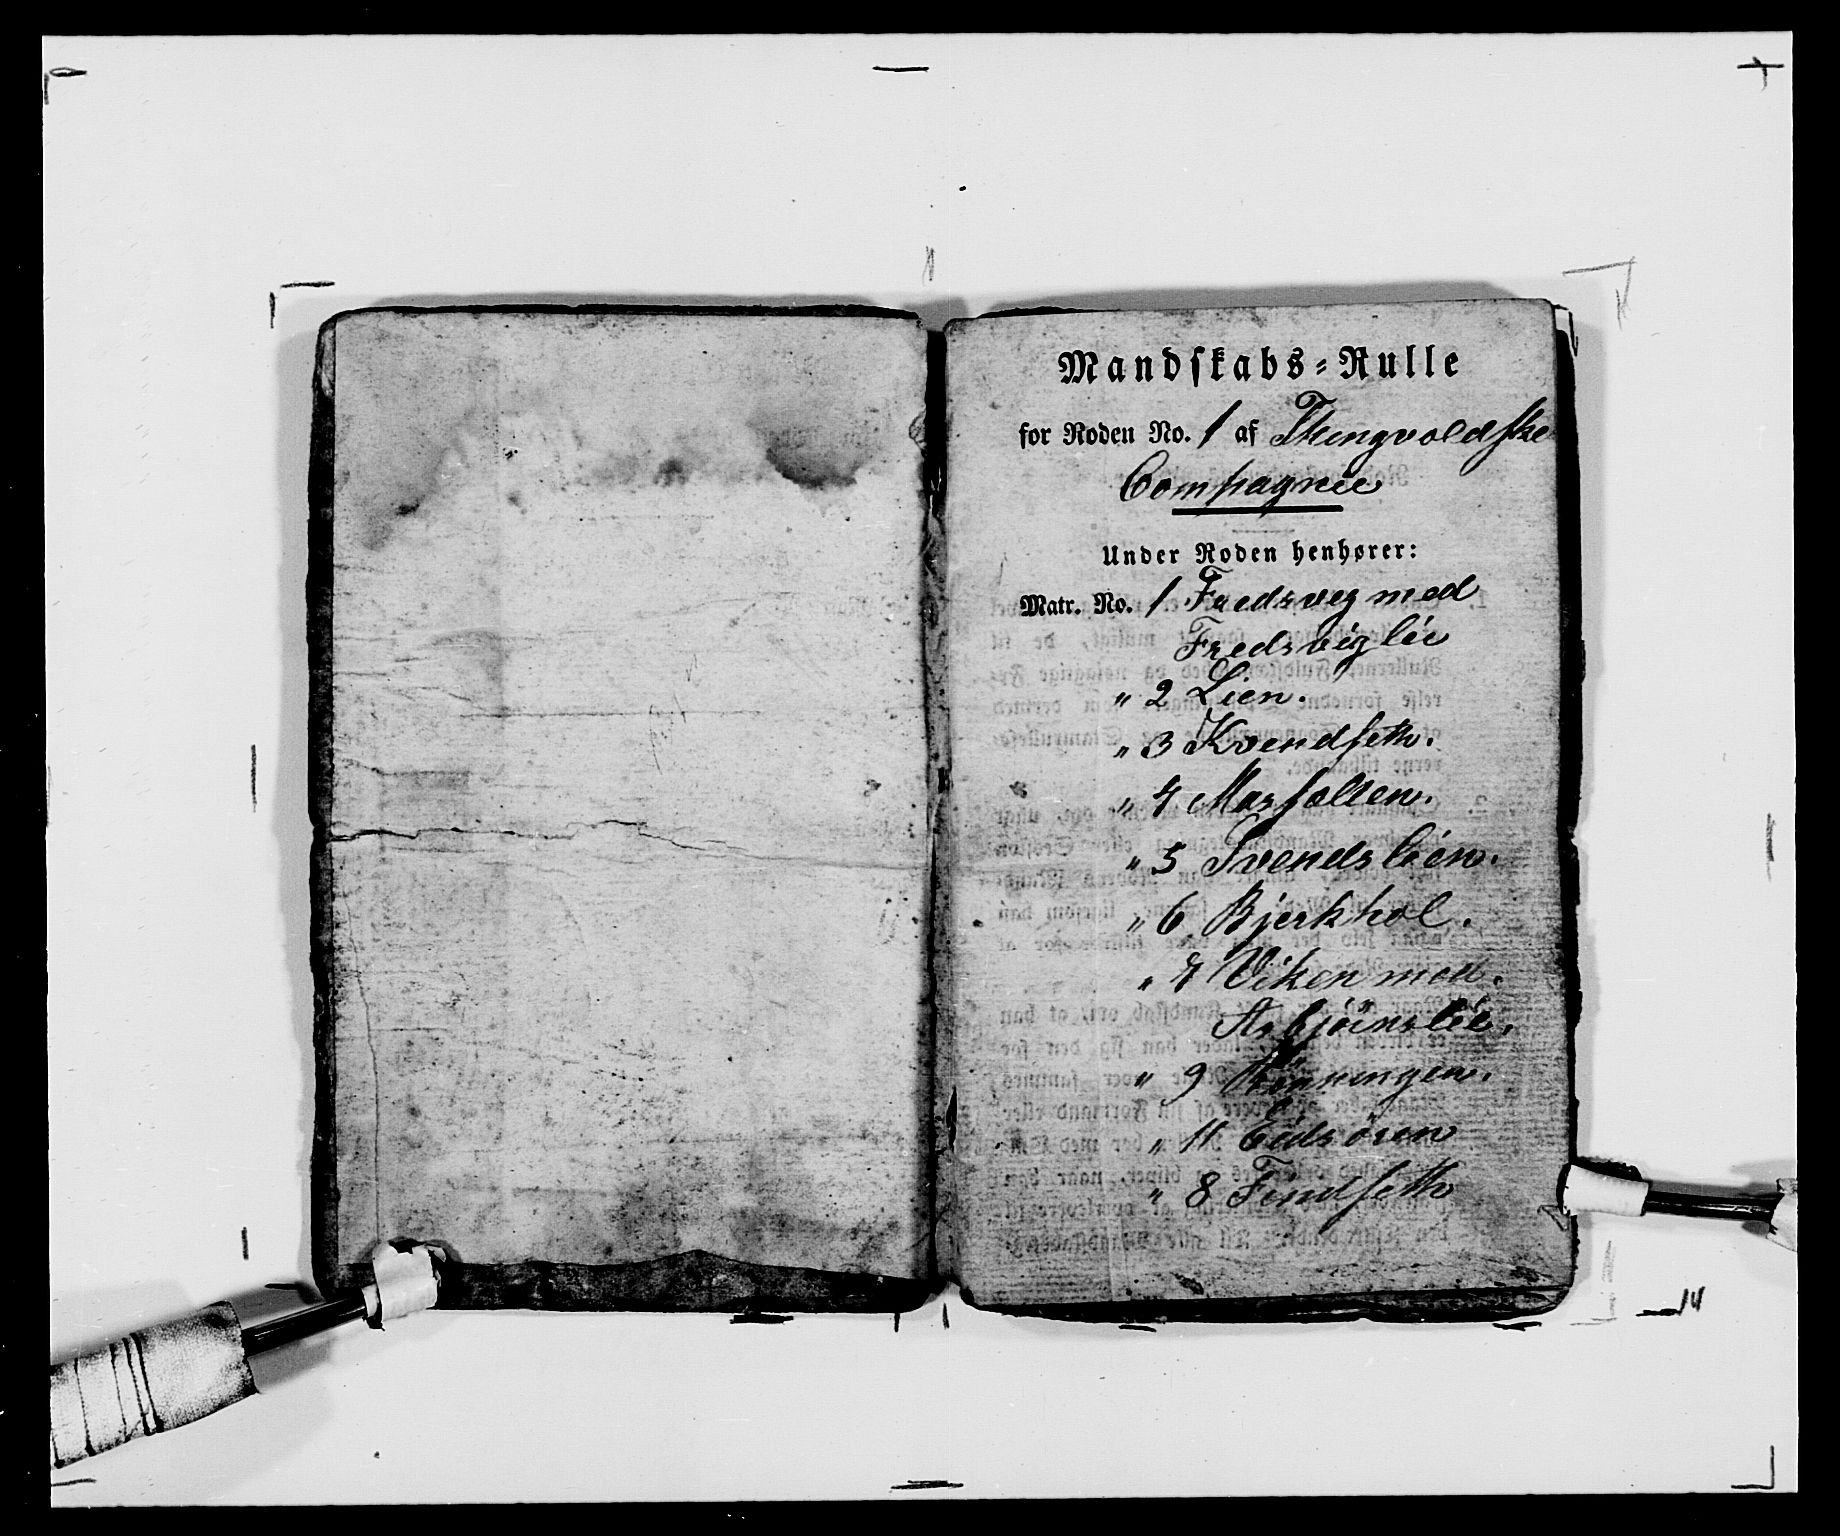 Mandskabs-Rulle
for Roden No. 1 af Thingvoldske
Compagnie
Under Roden henhører:
Matr. No. 1 Fredsveg med
Fredsviglie
" 2 Lien.
" 3 Kvendseth.
" 4 Massolten.
" 5 Svendslien.
" 6 Bjerkhol.
" 7 Viken med.
Asbjörnslie.
" 9 Rönningen.
" 11 Eidsören
" 8 Findseth
14